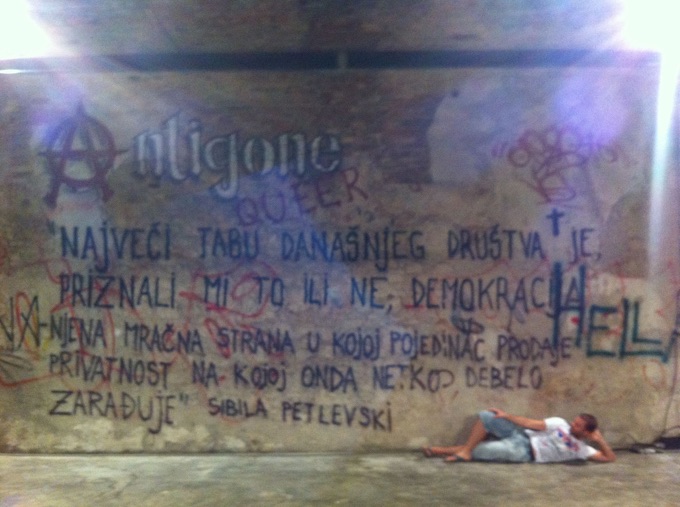 Antigone
QUEER
"NAJVEĆI TABU DANAŠNJEG DRUŠTVA JE,
PRIZNALI MI TO ILI NE, DEMOKRACIJA
HELL
-NJENA MRAČNA STRANA U KOJOJ POJEDINAC PRODAJE
PRIVATNOST NA KOJOJ ONDA NETKO DEBELO
ZARAĐUJE" SIBILA PETLEVSKI